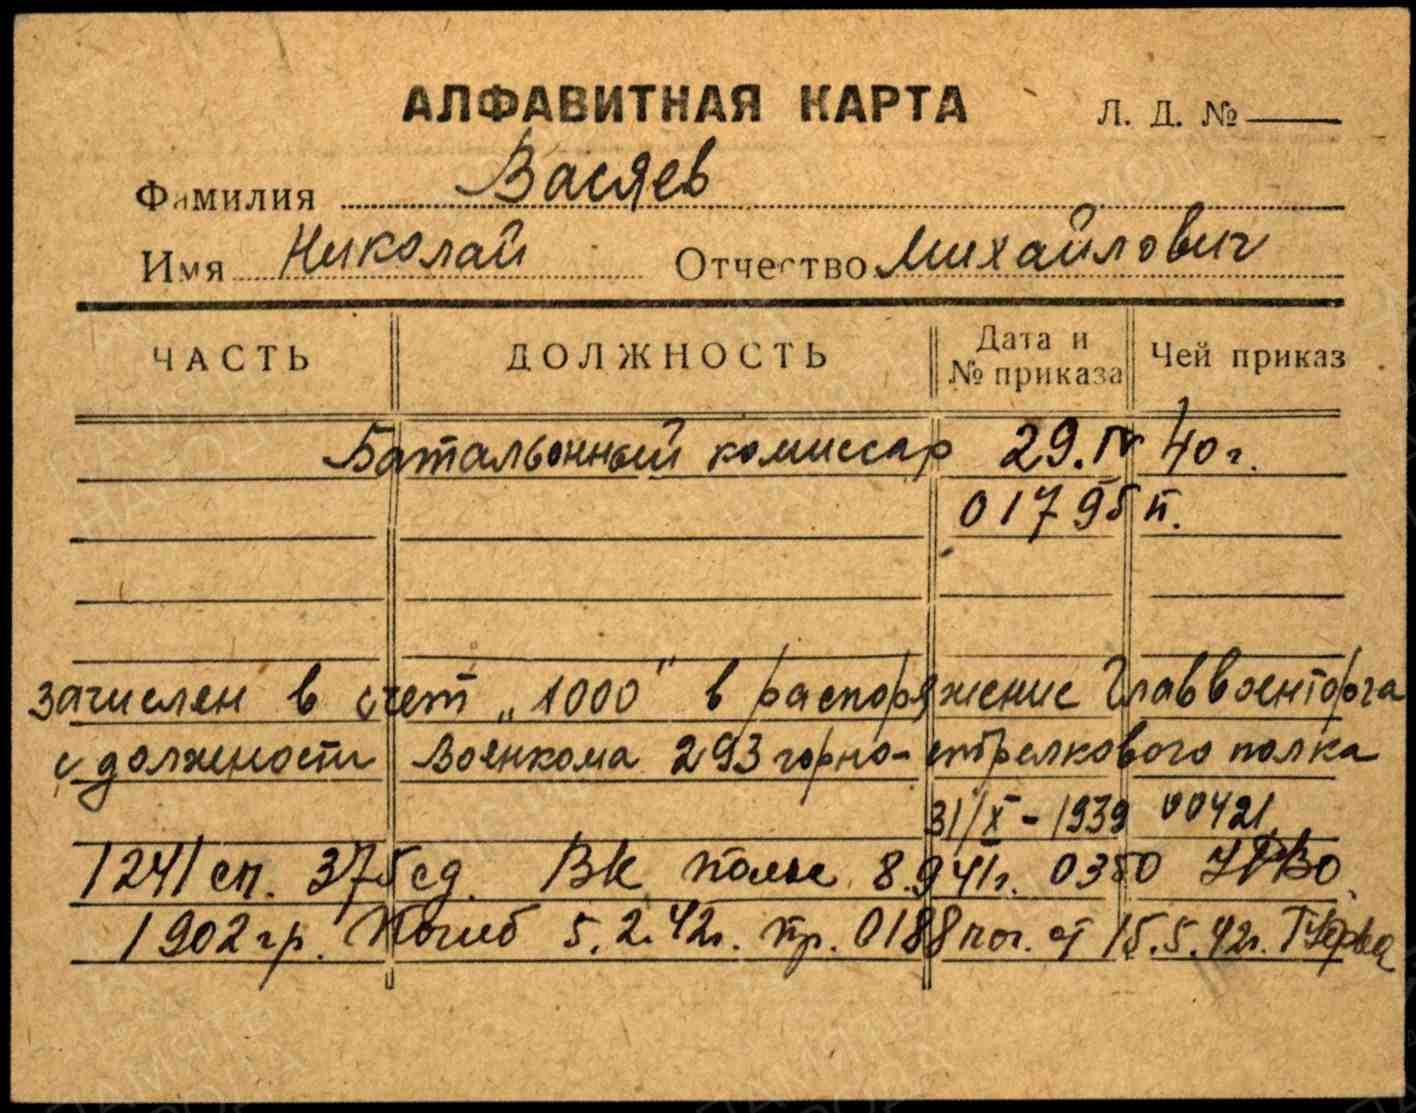 АЛФАВИТНАЯ КАРТА Л. Д. №
Фамилия Васяев
Имя Николай Отчество Михайлович
ЧАСТЬ ДОЛЖНОСТЬ Дата и № приказа Чей приказ
Батальонный комиссар 29.IV 40 г.
01795 п.
зачислен в счет „1000" в распоряжение Главвоенторга
с должности Военкома 293 горно-стрелкового полка
31/X - 1939 00421
1241 сп. 375 сд. ВК полка 8.9 41 г. 0350 УРВО
1902 гр. Погиб 5.2.42 г. пр. 0188 пог. от 15.5.42 г.